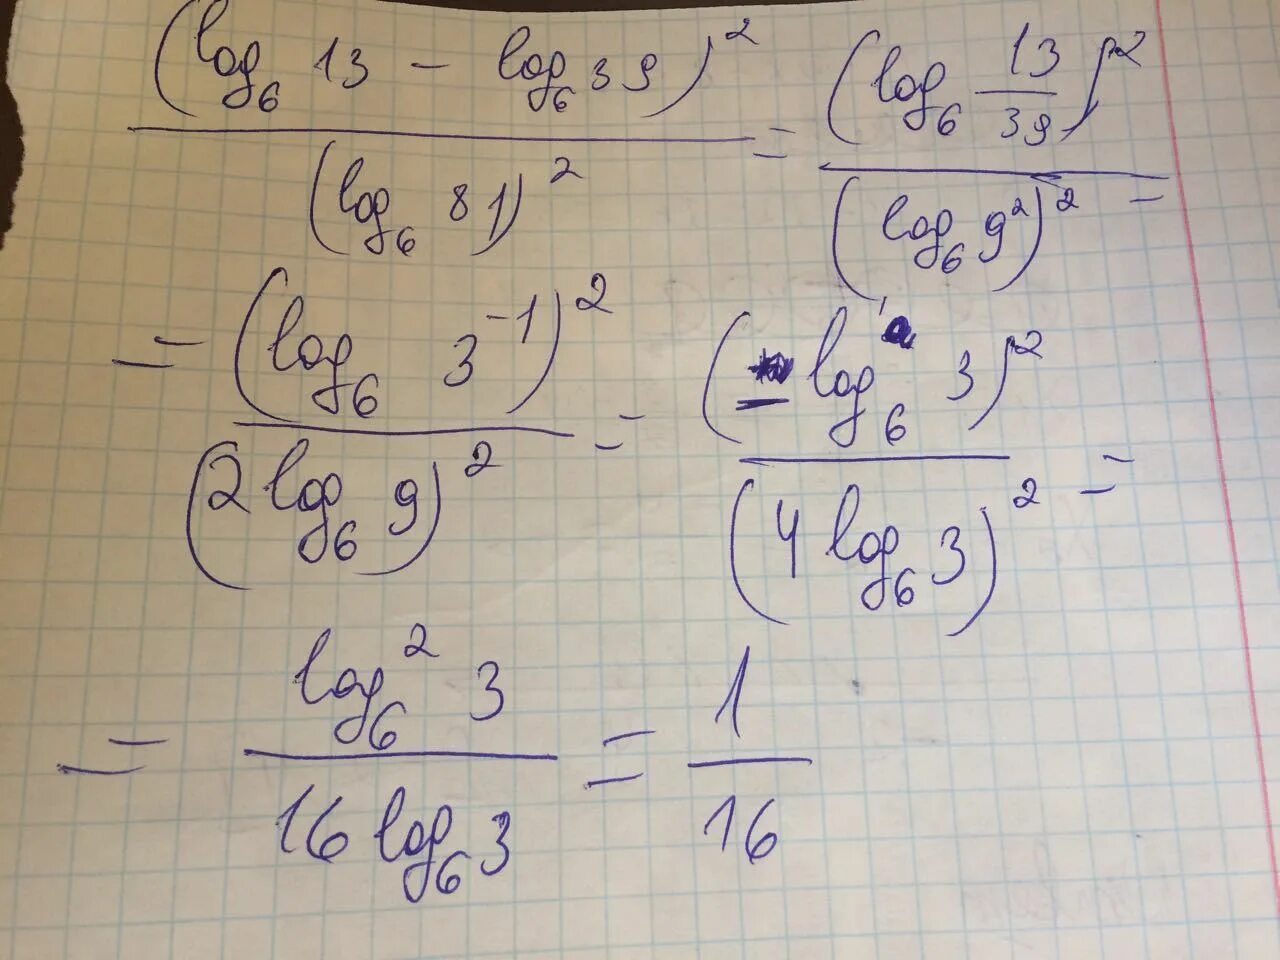 (log₆ 13 − log₆ 39)² / (log₆ 81)² = (log₆ 13/39)² / (log₆ 9²)² =
= (log₆ 3⁻¹)² / (2 log₆ 9)² = (− log₆ 3)² / (4 log₆ 3)² =
= log₆² 3 / 16 log₆ 3 = 1 / 16